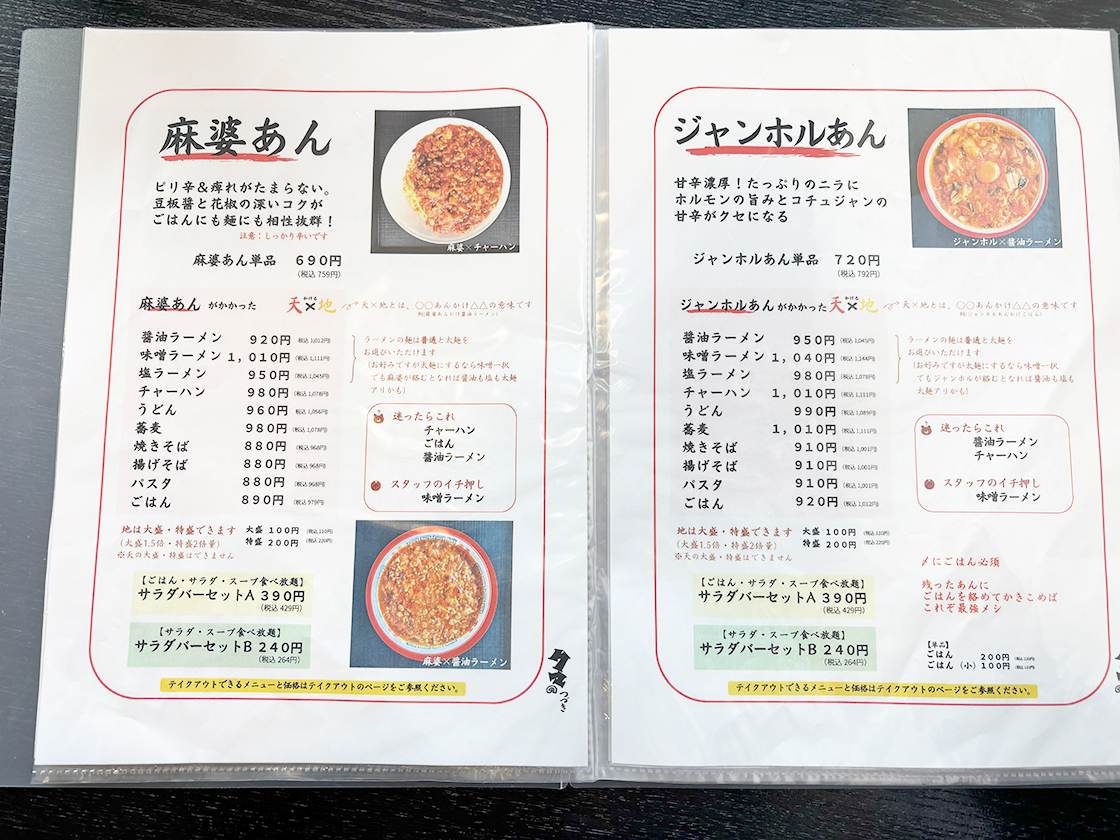 麻婆あん
ピリ辛&痺れがたまらない。
豆板醬と花椒の深いコクが
ごはんにも麺にも相性抜群!
注意:しっかり辛いです
麻婆あん単品 690円
(税込 759円)
麻婆×チャーハン
麻婆あん がかかった 天×地
かける
天×地とは、〇〇あんかけ△△の意味です
例(麻婆あんかけ醬油ラーメン)
醬油ラーメン 920円 (税込 1,012円)
味噌ラーメン 1,010円 (税込 1,111円)
塩ラーメン 950円 (税込 1,045円)
チャーハン 980円 (税込 1,078円)
うどん 960円 (税込 1,056円)
蕎麦 980円 (税込 1,078円)
焼きそば 880円 (税込 968円)
揚げそば 880円 (税込 968円)
パスタ 880円 (税込 968円)
ごはん 890円 (税込 979円)
ラーメンの麺は普通と太麺を
お選びいただけます
(お好みですが太麺にするなら味噌一択
でも麻婆が絡むとなれば醬油も塩も太麺
アリかも)
迷ったらこれ
チャーハン
ごはん
醬油ラーメン
スタッフのイチ押し
味噌ラーメン
地は大盛・特盛できます
(大盛1.5倍・特盛2倍量)
※天の大盛・特盛はできません
大盛 100円 (税込 110円)
特盛 200円 (税込 220円)
【ごはん・サラダ・スープ食べ放題】
サラダバーセットA 390円
(税込 429円)
【サラダ・スープ食べ放題】
サラダバーセットB 240円
(税込 264円)
麻婆×醬油ラーメン
テイクアウトできるメニューと価格はテイクアウトのページをご参照ください。
つづき
ジャンホルあん
甘辛濃厚!たっぷりのニラに
ホルモンの旨みとコチュジャンの
甘辛がクセになる
ジャンホルあん単品 720円
(税込 792円)
ジャンホル×醬油ラーメン
ジャンホルあん がかかった 天×地
かける
天×地とは、〇〇あんかけ△△の意味です
例(ジャンホルあんかけごはん)
醬油ラーメン 950円 (税込 1,045円)
味噌ラーメン 1,040円 (税込 1,144円)
塩ラーメン 980円 (税込 1,078円)
チャーハン 1,010円 (税込 1,111円)
うどん 990円 (税込 1,089円)
蕎麦 1,010円 (税込 1,111円)
焼きそば 910円 (税込 1,001円)
揚げそば 910円 (税込 1,001円)
パスタ 910円 (税込 1,001円)
ごはん 920円 (税込 1,012円)
ラーメンの麺は普通と太麺を
お選びいただけます
(お好みですが太麺にするなら味噌一択
でもジャンホルが絡むとなれば醬油も塩も
太麺アリかも)
迷ったらこれ
醬油ラーメン
チャーハン
スタッフのイチ押し
味噌ラーメン
地は大盛・特盛できます
(大盛1.5倍・特盛2倍量)
※天の大盛・特盛はできません
大盛 100円 (税込 110円)
特盛 200円 (税込 220円)
〆にごはん必須
残ったあんに
ごはんを絡めてかきこめば
これぞ最強メシ
【ごはん・サラダ・スープ食べ放題】
サラダバーセットA 390円
(税込 429円)
【サラダ・スープ食べ放題】
サラダバーセットB 240円
(税込 264円)
【単品】
ごはん 200円
ごはん(小) 100円
テイクアウトできるメニューと価格はテイクアウトのページをご参照ください。